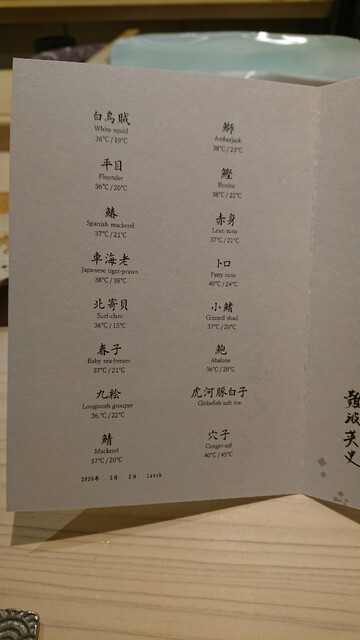 白烏賊
White squid
36℃ / 19℃
平目
Flounder
36℃ / 20℃
鰆
Spanish mackerel
37℃ / 21℃
車海老
Japanese tiger-prawn
38℃ / 38℃
北寄貝
Surf-clam
36℃ / 15℃
春子
Baby sea-bream
37℃ / 21℃
九絵
Longtooth grouper
36.℃ / 22℃
鯖
Mackerel
37℃ / 20℃
2020年 2月 2日 lunch
鰤
Amberjack
38℃ / 23℃
鰹
Bonito
38℃ / 22℃
赤身
Lean tuna
37℃ / 21℃
トロ
Fatty tuna
40℃ / 24℃
小鰭
Gizzard shad
37℃ / 20℃
鮑
Abalone
36℃ / 20℃
虎河豚白子
Globefish soft roe
穴子
Conger-eel
40℃ / 45℃
難波英史